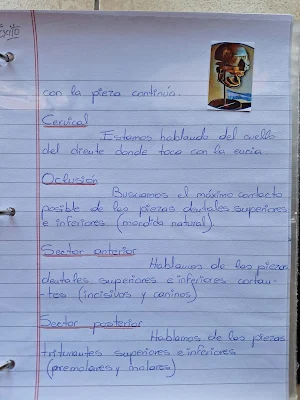 éxito
con la pieza continúa.
Cervical
Estamos hablando del cuello
del diente donde toca con la encía.
Oclusión
Buscamos el máximo contacto
posible de las piezas dentales superiores
e inferiores (mordida natural).
Sector anterior
Hablamos de las piezas
dentales superiores e inferiores cortan-
-tes (incisivos y caninos)
Sector posterior
Hablamos de las piezas
triturantes superiores e inferiores
(premolares y molares)